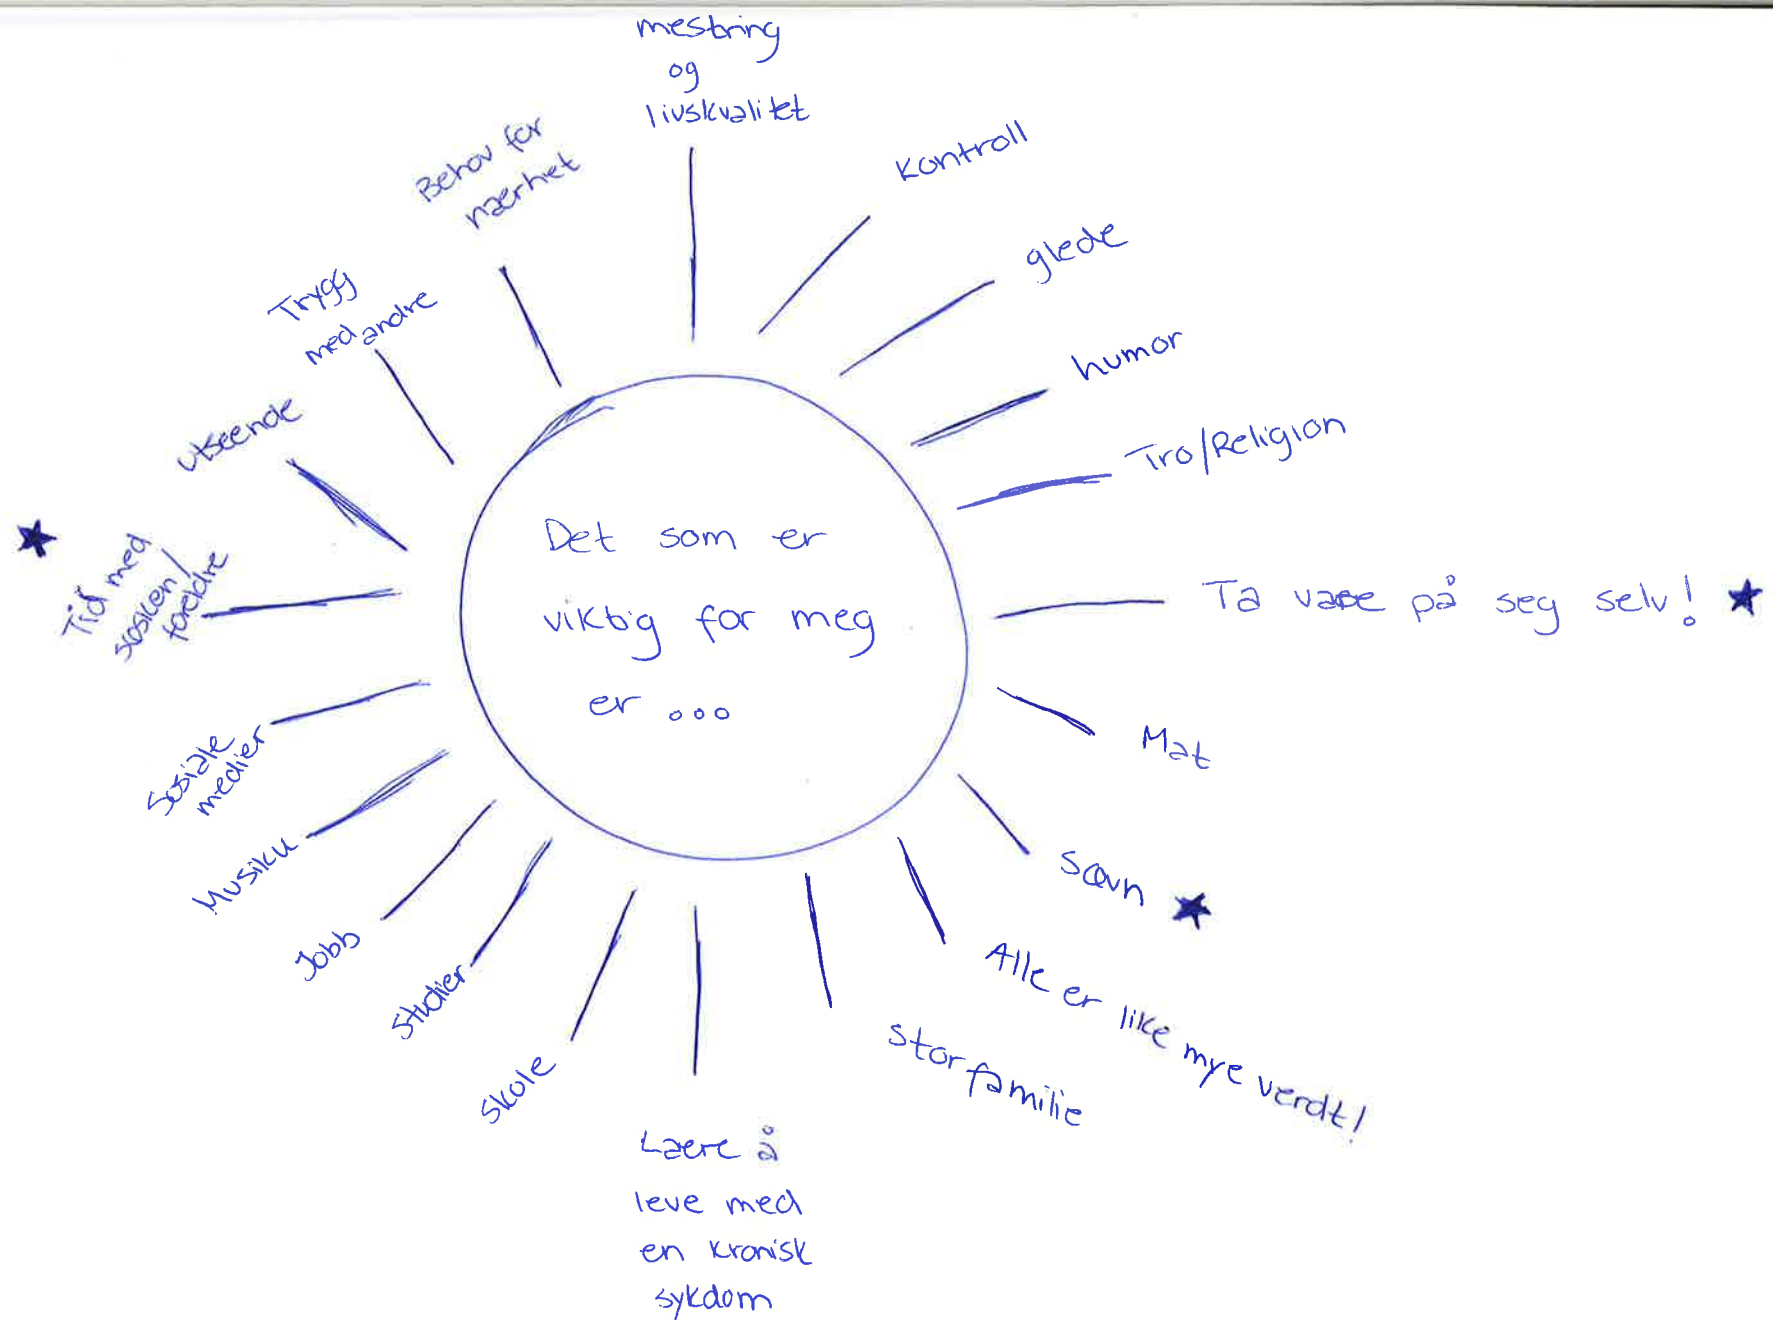 mestring
og
livskvalitet
Kontroll
glede
humor
Tro/Religion
Ta vare på seg selv!
Mat
Søvn
Alle er like mye verdt!
Storfamilie
Lære å
leve med
en kronisk
sykdom
Skole
Studier
Jobb
Musikk
Sosiale
medier
Tid med
søsken/
foreldre
Utseende
Trygg
med andre
Behov for
nærhet
Det som er
viktig for meg
er ...